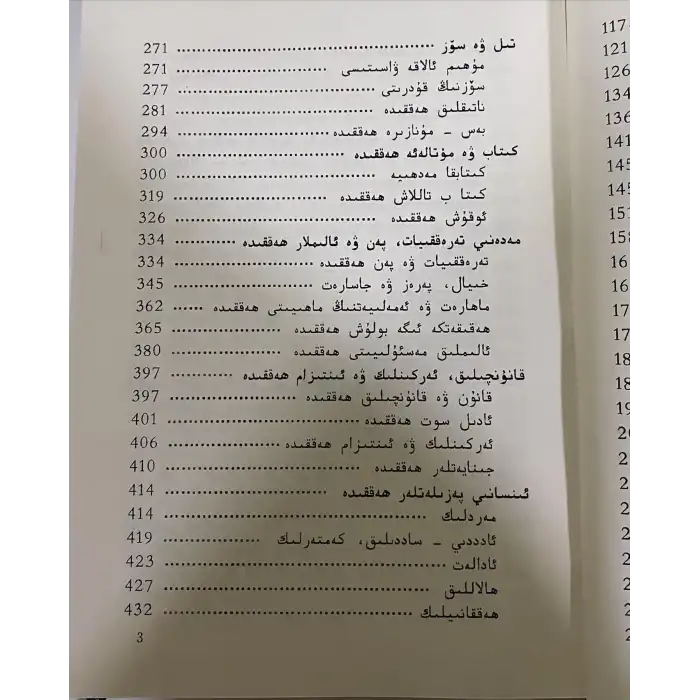 تىل ۋە سۆز ............ 271
مۇھىم ئالاقە ۋاسىتىسى ............ 271
سۆزنىڭ قۇدرىتى ............ 277
ناتىقلىق ھەققىدە ............ 281
بەس - مۇنازىرە ھەققىدە ............ 294
كىتاب ۋە مۇتالەئە ھەققىدە ............ 300
كىتابقا مەدھىيە ............ 300
كىتا ب تاللاش ھەققىدە ............ 319
ئوقۇش ھەققىدە ............ 326
مەدەنىي تەرەققىيات، پەن ۋە ئالىملار ھەققىدە ............ 334
تەرەققىيات ۋە پەن ھەققىدە ............ 334
خىيال، پەرەز ۋە جاسارەت ............ 345
ماھارەت ۋە ئەمەلىيەتنىڭ ماھىيىتى ھەققىدە ...... 362
ھەقىقەتكە ئىگە بولۇش ھەققىدە ............ 365
ئالىملىق مەسئۇلىيىتى ھەققىدە ............ 380
قانۇنچىلىق، ئەركىنلىك ۋە ئىنتىزام ھەققىدە ............ 397
قانۇن ۋە قانۇنچىلىق ھەققىدە ............ 397
ئادىل سوت ھەققىدە ............ 401
ئەركىنلىك ۋە ئىنتىزام ھەققىدە ............ 406
جىنايەتلەر ھەققىدە ............ 410
ئىنسانىي پەزىلەتلەر ھەققىدە ............ 414
مەردلىك ............ 414
ئادددىي - ساددىلىق، كەمتەرلىك ............ 419
ئادالەت ............ 423
ھالاللىق ............ 427
ھەققانىيلىك ............ 432
3
117
121
126
134
136
141
145